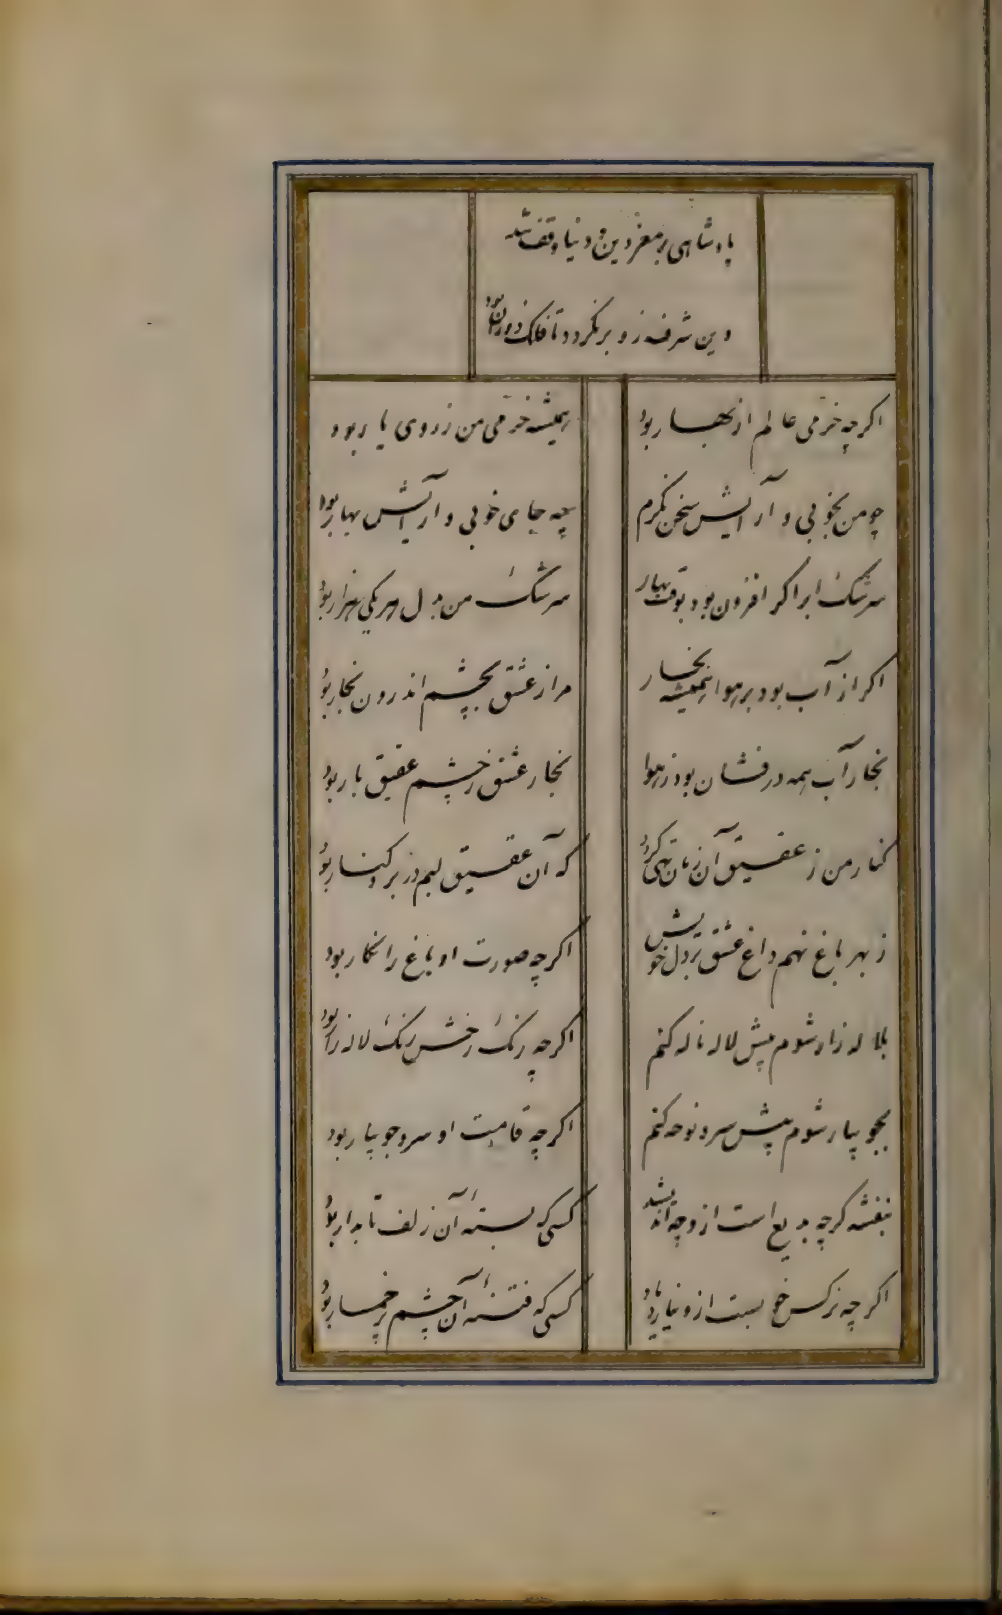 پادشاهی بر معز دین و دنیا وقف شد
وین شرف زو برنگردد تا فلک دوران بود
اگرچه خرمی عالم از بهار بود
همیشه خرمی من ز روی یار بود
چو من بخوبی و آرایش سخن نگرم
چه جای خوبی و آرایش بهار بود
سرشک ابر اگر افزون بود بوقت بهار
سرشک من بدل هر یکی هزار بود
اگر از آب بود بر هوا همیشه بخار
مرا ز عشق بچشم اندرون بخار بود
بخار آب همه درفشان بود ز هوا
بخار عشق ز چشمم عقیق بار بود
کنار من ز عقیق آن زمان تهی گردد
که آن عقیق لبم در بر و کنار بود
ز بهر باغ نهم داغ عشق بر دل خویش
اگرچه صورت او باغ را نگار بود
بلاله زار شوم پیش لاله ناله کنم
اگرچه رنگ رخش رنگ لاله زار بود
بجویبار شوم پیش سرو نوحه کنم
اگرچه قامت او سرو جویبار بود
بنفشه گرچه بدیع است ازو چه اندیشد
کسی که بسته آن زلف تابدار بود
اگرچه نرگس خوبست ازو نیارد یاد
کسی که فتنه آن چشم پرخمار بود